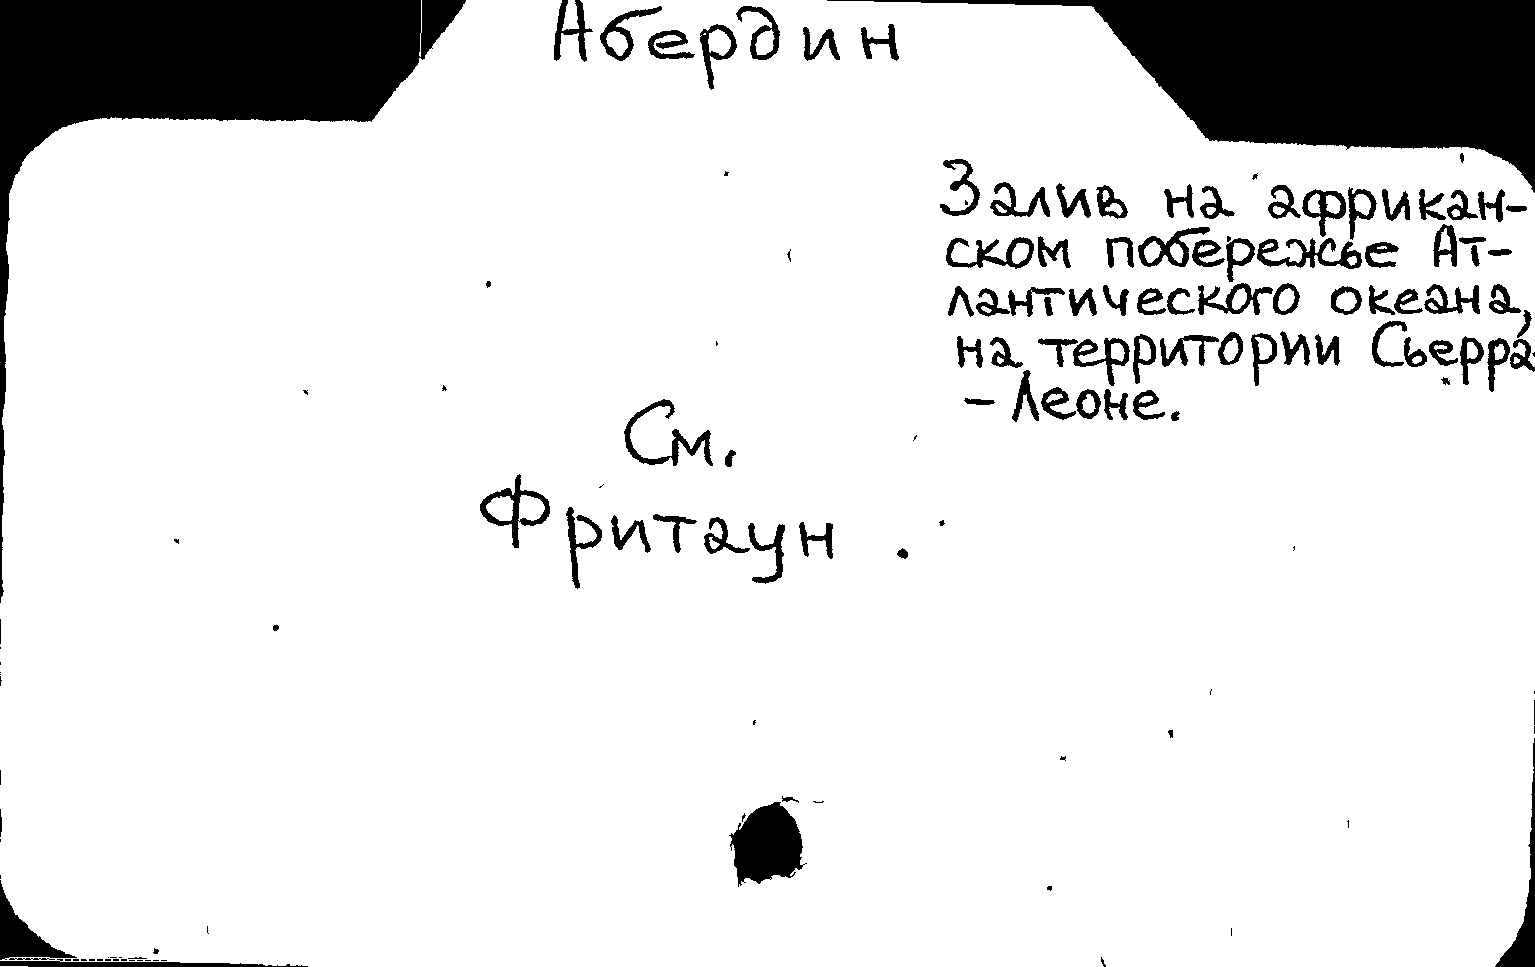 Абердин
Залив на африкан-
ском побережье Ат-
лантического океана,
на территории Сьерра-
- Леоне.
См.
Фритаун